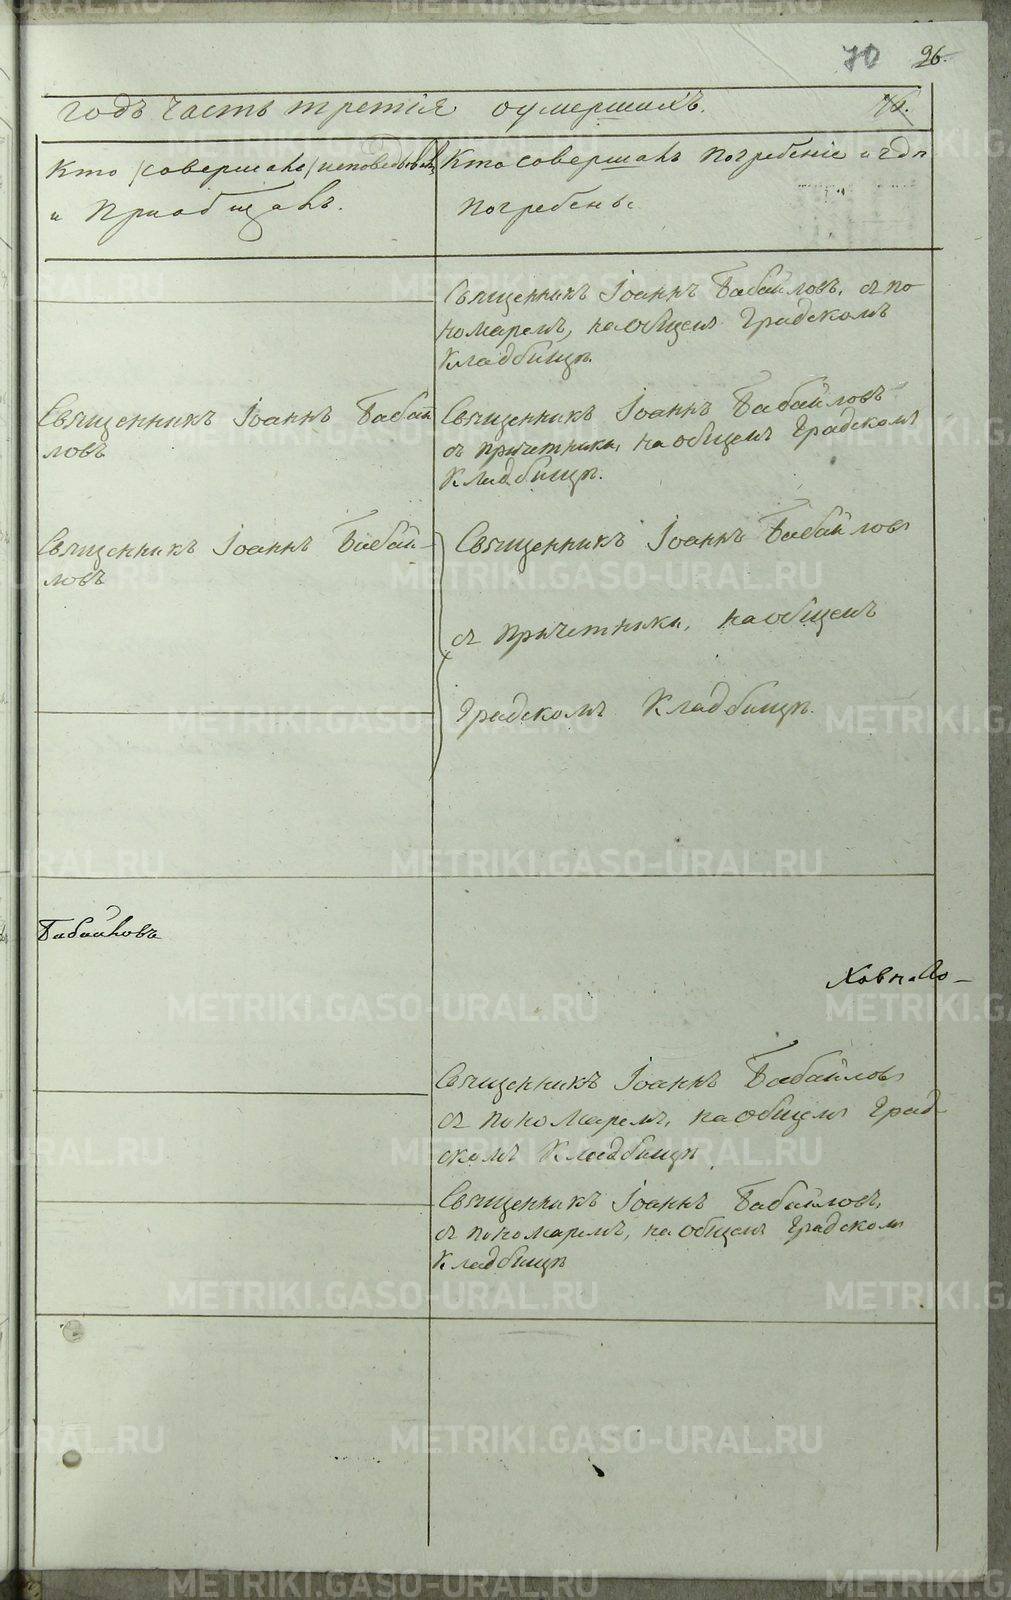 70 26.
годъ часть третія оумершихъ.
Кто /совершалъ/ исповедывалъ
и Приобщалъ.
Кто совершалъ Погребеніе и гдѣ
Погребены.
Священникъ Іоаннъ Бабайловъ, съ по
номаремъ, на общемъ Градскомъ
Кладбищѣ.
Священникъ Іоаннъ Бабай
ловъ
Священникъ Іоаннъ Бабайловъ
съ причетники, на общемъ Градскомъ
Кладбищѣ.
Священникъ Іоаннъ Бабай-
ловъ
Священникъ Іоаннъ Бабайловъ
съ Причетники, на общемъ
Градскомъ Кладбищѣ.
Бабайловъ
Священникъ Іоаннъ Бабайловъ
съ пономаремъ, на общемъ Град-
скомъ Кладбищѣ
Священникъ Іоаннъ Бабайловъ,
съ пономаремъ, на общемъ Градскомъ
Кладбищѣ
METRIKI.GASO-URAL.RU